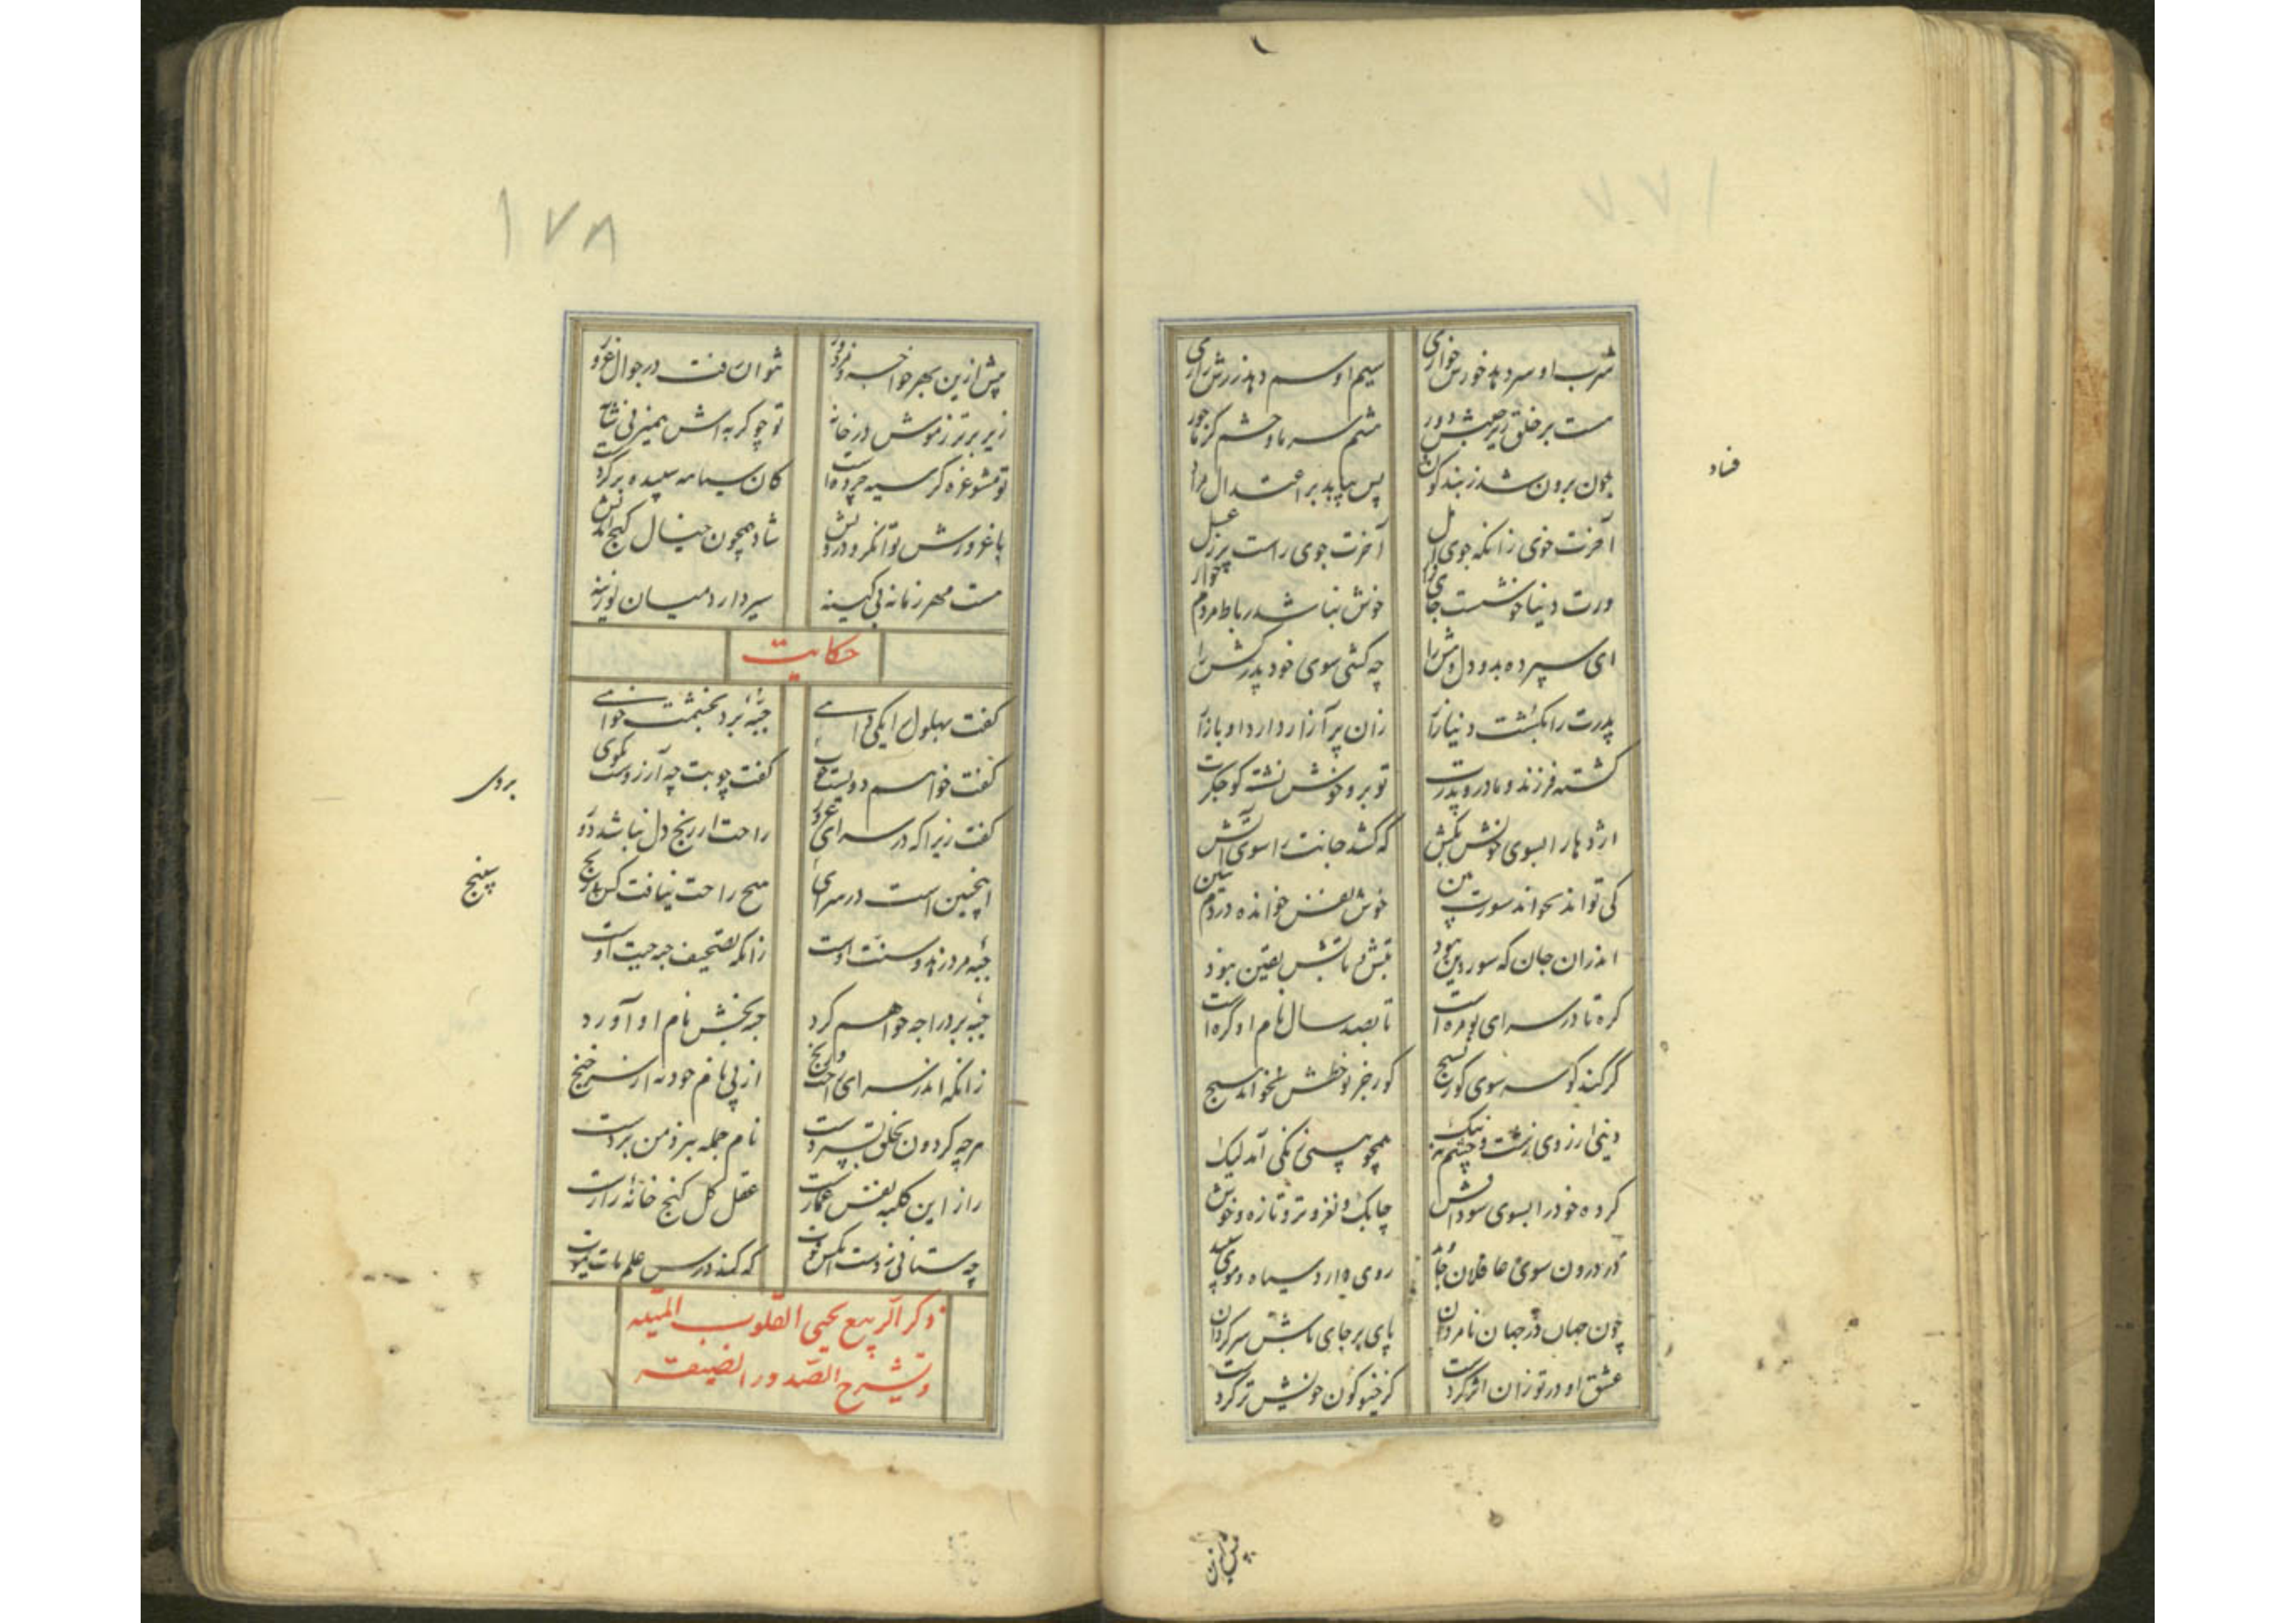 شربت او سر دهد خورش خواری
سیم او سم دهد زرش زاری
هست بر خلق زیر چنبر دور
چون برون شد ز بند کون
پس بیاید بر اعتدال مراد
فساد
آخرت جوی زانکه جوی
آخرت جوی راست
ورت دنیا خوشست جای
خوش نباشد رباط مردم خوار
ای سپرده بدو دل و هش را
چه کشی سوی خود پدر کش را
پدرت را بکشت دنیا زار
زان پر آزار دارد او بازار
کشته فرزند و مادر و پدرت
تو برو خوش نشسته کو جگرت
اژدها را بسوی خویش مکش
که کشد جانت را سوی آتش
کی تواند بخواند سورت
خوش نفس خوانده در دم تنین
اندران جان که سور دین بود
تبش و تابش یقین نبود
کره تا در سرای بومره است
تا بصد سال نام او کره است
گر کند کوسه سوی کور بسیج
کور جز نو خطش نخواند هیچ
دینی ار زوی زشت و چشم نه نیک
همچو پستی زنگی آمد لیک
کرده خود را بسوی سوداش
چابک و نغز و تر و تازه و خوش
در درون سوی عاقلان جاوید
روی دارد سیاه و موی سپید
چون جهان در جهان نامردان
پای بر جای باش سرگردان
عشق او در تو زان اثر کردست
کز خیو کون خویش تر کردست
پیش ازین
۱۷۸
پیش ازین بهر خواجه و مزدور
نتوان رفت در جوال غرور
زیر برتر ز موش در خانه
تو چو گربه اش همیزنی شانه
تو مشو غره گر سیه چرده است
کان سیاه سپیده بر کردست
با غرورش توانگر و درویش
شاد همچون خیال گنج اندیش
هست مهر زمانه بی کینه
سیر دارد میان لوزینه
حکایت
گفت بهلول را یکی داهی
جبه بردی بخشمت خواهی
گفت خواهم دویست چوب
گفت چوبت چه آرزوست بگوی
بردی
گفت زیرا که در سرای غرور
راحت از رنج دل نباشد دور
اینچنین است در سرای
هیچ راحت نیافت کس بی رنج
سپنج
جبه مرد زهد و سنت اوست
زانکه تصحیف جبه جیت اوست
جبه برد را چه خواهم کرد
جبه بخش نام او آورد
زانکه اندر سرای راحت و رنج
از پی نام خود نه از سر خنج
هرچه گردون بخلق بسپردست
نام جمله ببرد من بردست
راز این کلبه نفس عمارت
عقل کل گنج خانه را
چه ستانی ز دست آنکس قوت
که کند درس علم مات یموت
ذکر الربیع یحیی القلوب المیته
و یشرح الصدور الضیقه